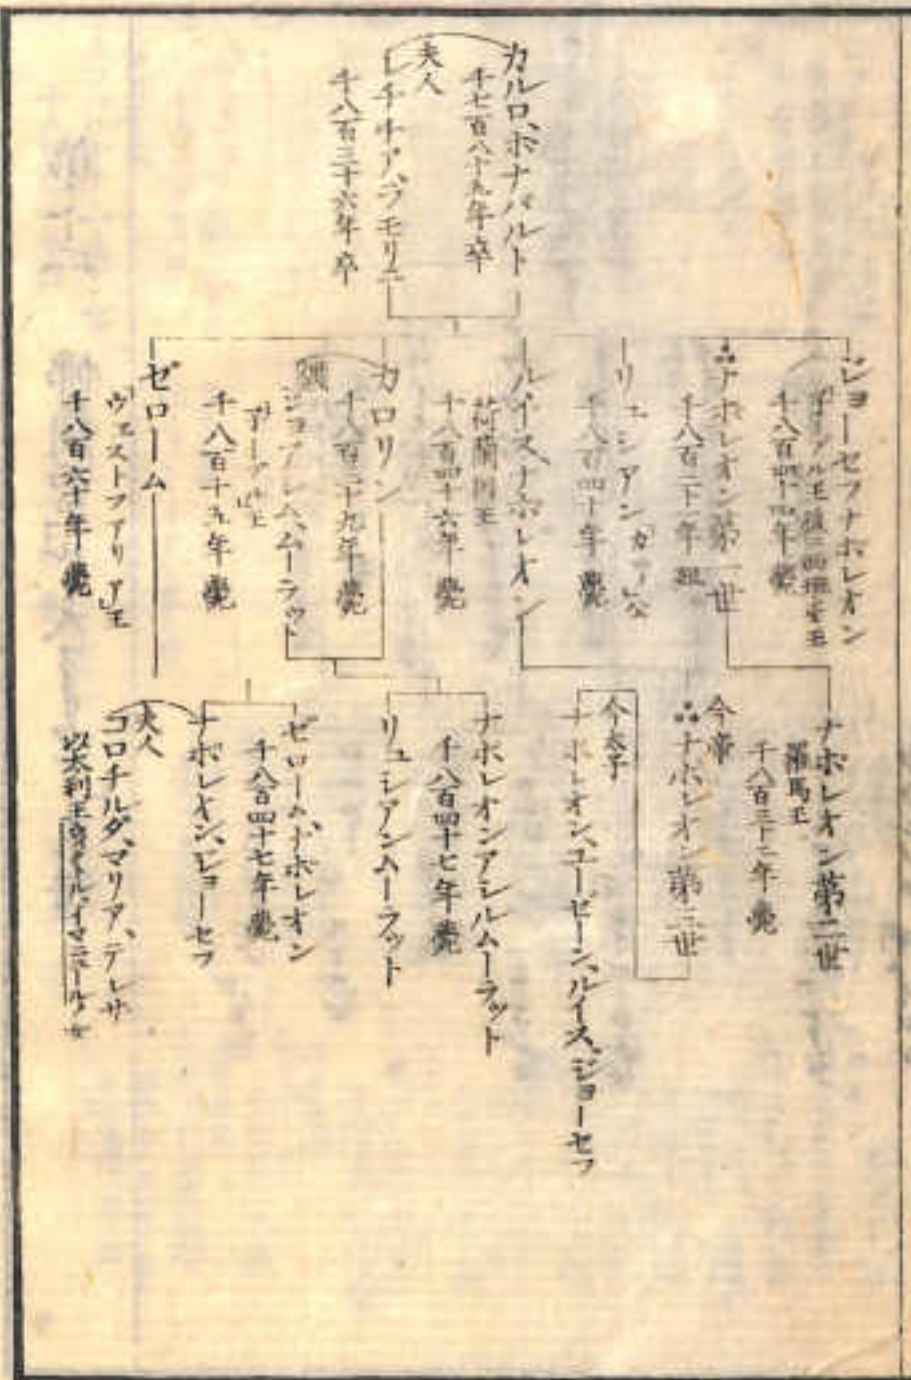 カルロ、ボナパルト
千七百八十九年卒
夫人
レチチア、ラモリニ
千八百三十六年卒
ジョーセフナポレオン
千八百四十四年薨
ナポレオン第一世
千八百二十一年殂
リュシアン
千八百四十年薨
ルイスナポレオン
荷蘭国王
千八百四十六年薨
カロリン
千八百三十九年薨
ジョアシム、ムーラット
千八百十五年薨
ゼローム
ヴェストフアリア王
千八百六十年薨
ナポレオン第二世
羅馬王
千八百三十二年薨
今帝
ナポレオン第三世
今太子
ナポレオン、ユーゼーン、ルイス、ジョーセフ
ナポレオンアシルムーラット
千八百四十七年薨
リュシアンムーラット
ゼローム、ナポレオン
千八百四十七年薨
ナポレオン、ジョーセフ
夫人
コロチルダ、マリア、テレサ
以太利王